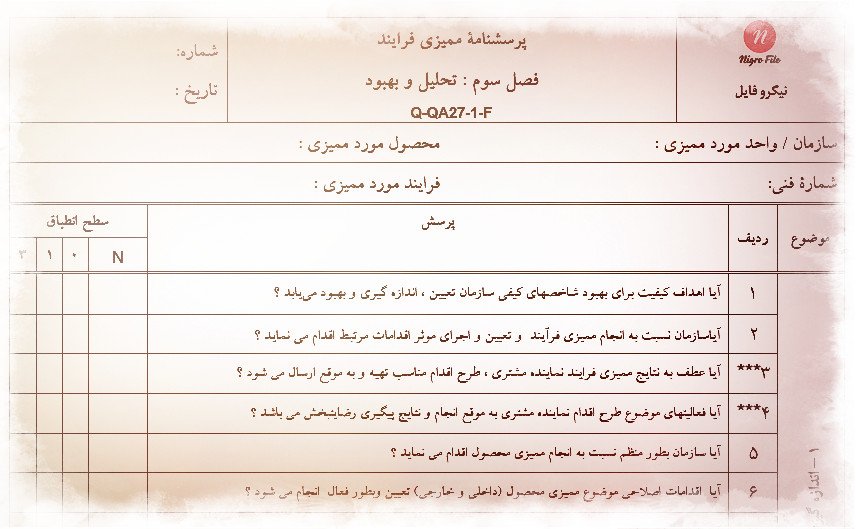 n
Nigro File
نیگرو فایل
پرسشنامهٔ ممیزی فرایند
فصل سوم : تحلیل و بهبود
Q-QA27-1-F
شماره:
تاریخ :
سازمان / واحد مورد ممیزی :
محصول مورد ممیزی :
شمارهٔ فنی:
فرایند مورد ممیزی :
موضوع ردیف پرسش سطح انطباق
N ۰ ۱ ۳
۱ آیا اهداف کیفیت برای بهبود شاخصهای کیفی سازمان تعیین ، اندازه گیری و بهبود می‌یابد ؟
۲ آیاسازمان نسبت به انجام ممیزی فرآیند و تعیین و اجرای موثر اقدامات مرتبط اقدام می نماید ؟
***۳ آیا عطف به نتایج ممیزی فرایند نماینده مشتری ، طرح اقدام مناسب تهیه و به موقع ارسال می شود ؟
***۴ آیا فعالیتهای موضوع طرح اقدام نماینده مشتری به موقع انجام و نتایج پیگیری رضایتبخش می باشد ؟
۵ آیا سازمان بطور منظم نسبت به انجام ممیزی محصول اقدام می نماید ؟
۶ آیا اقدامات اصلاحی موضوع ممیزی محصول (داخلی و خارجی) تعیین وبطور فعال انجام می شود ؟
۱ – اندازه